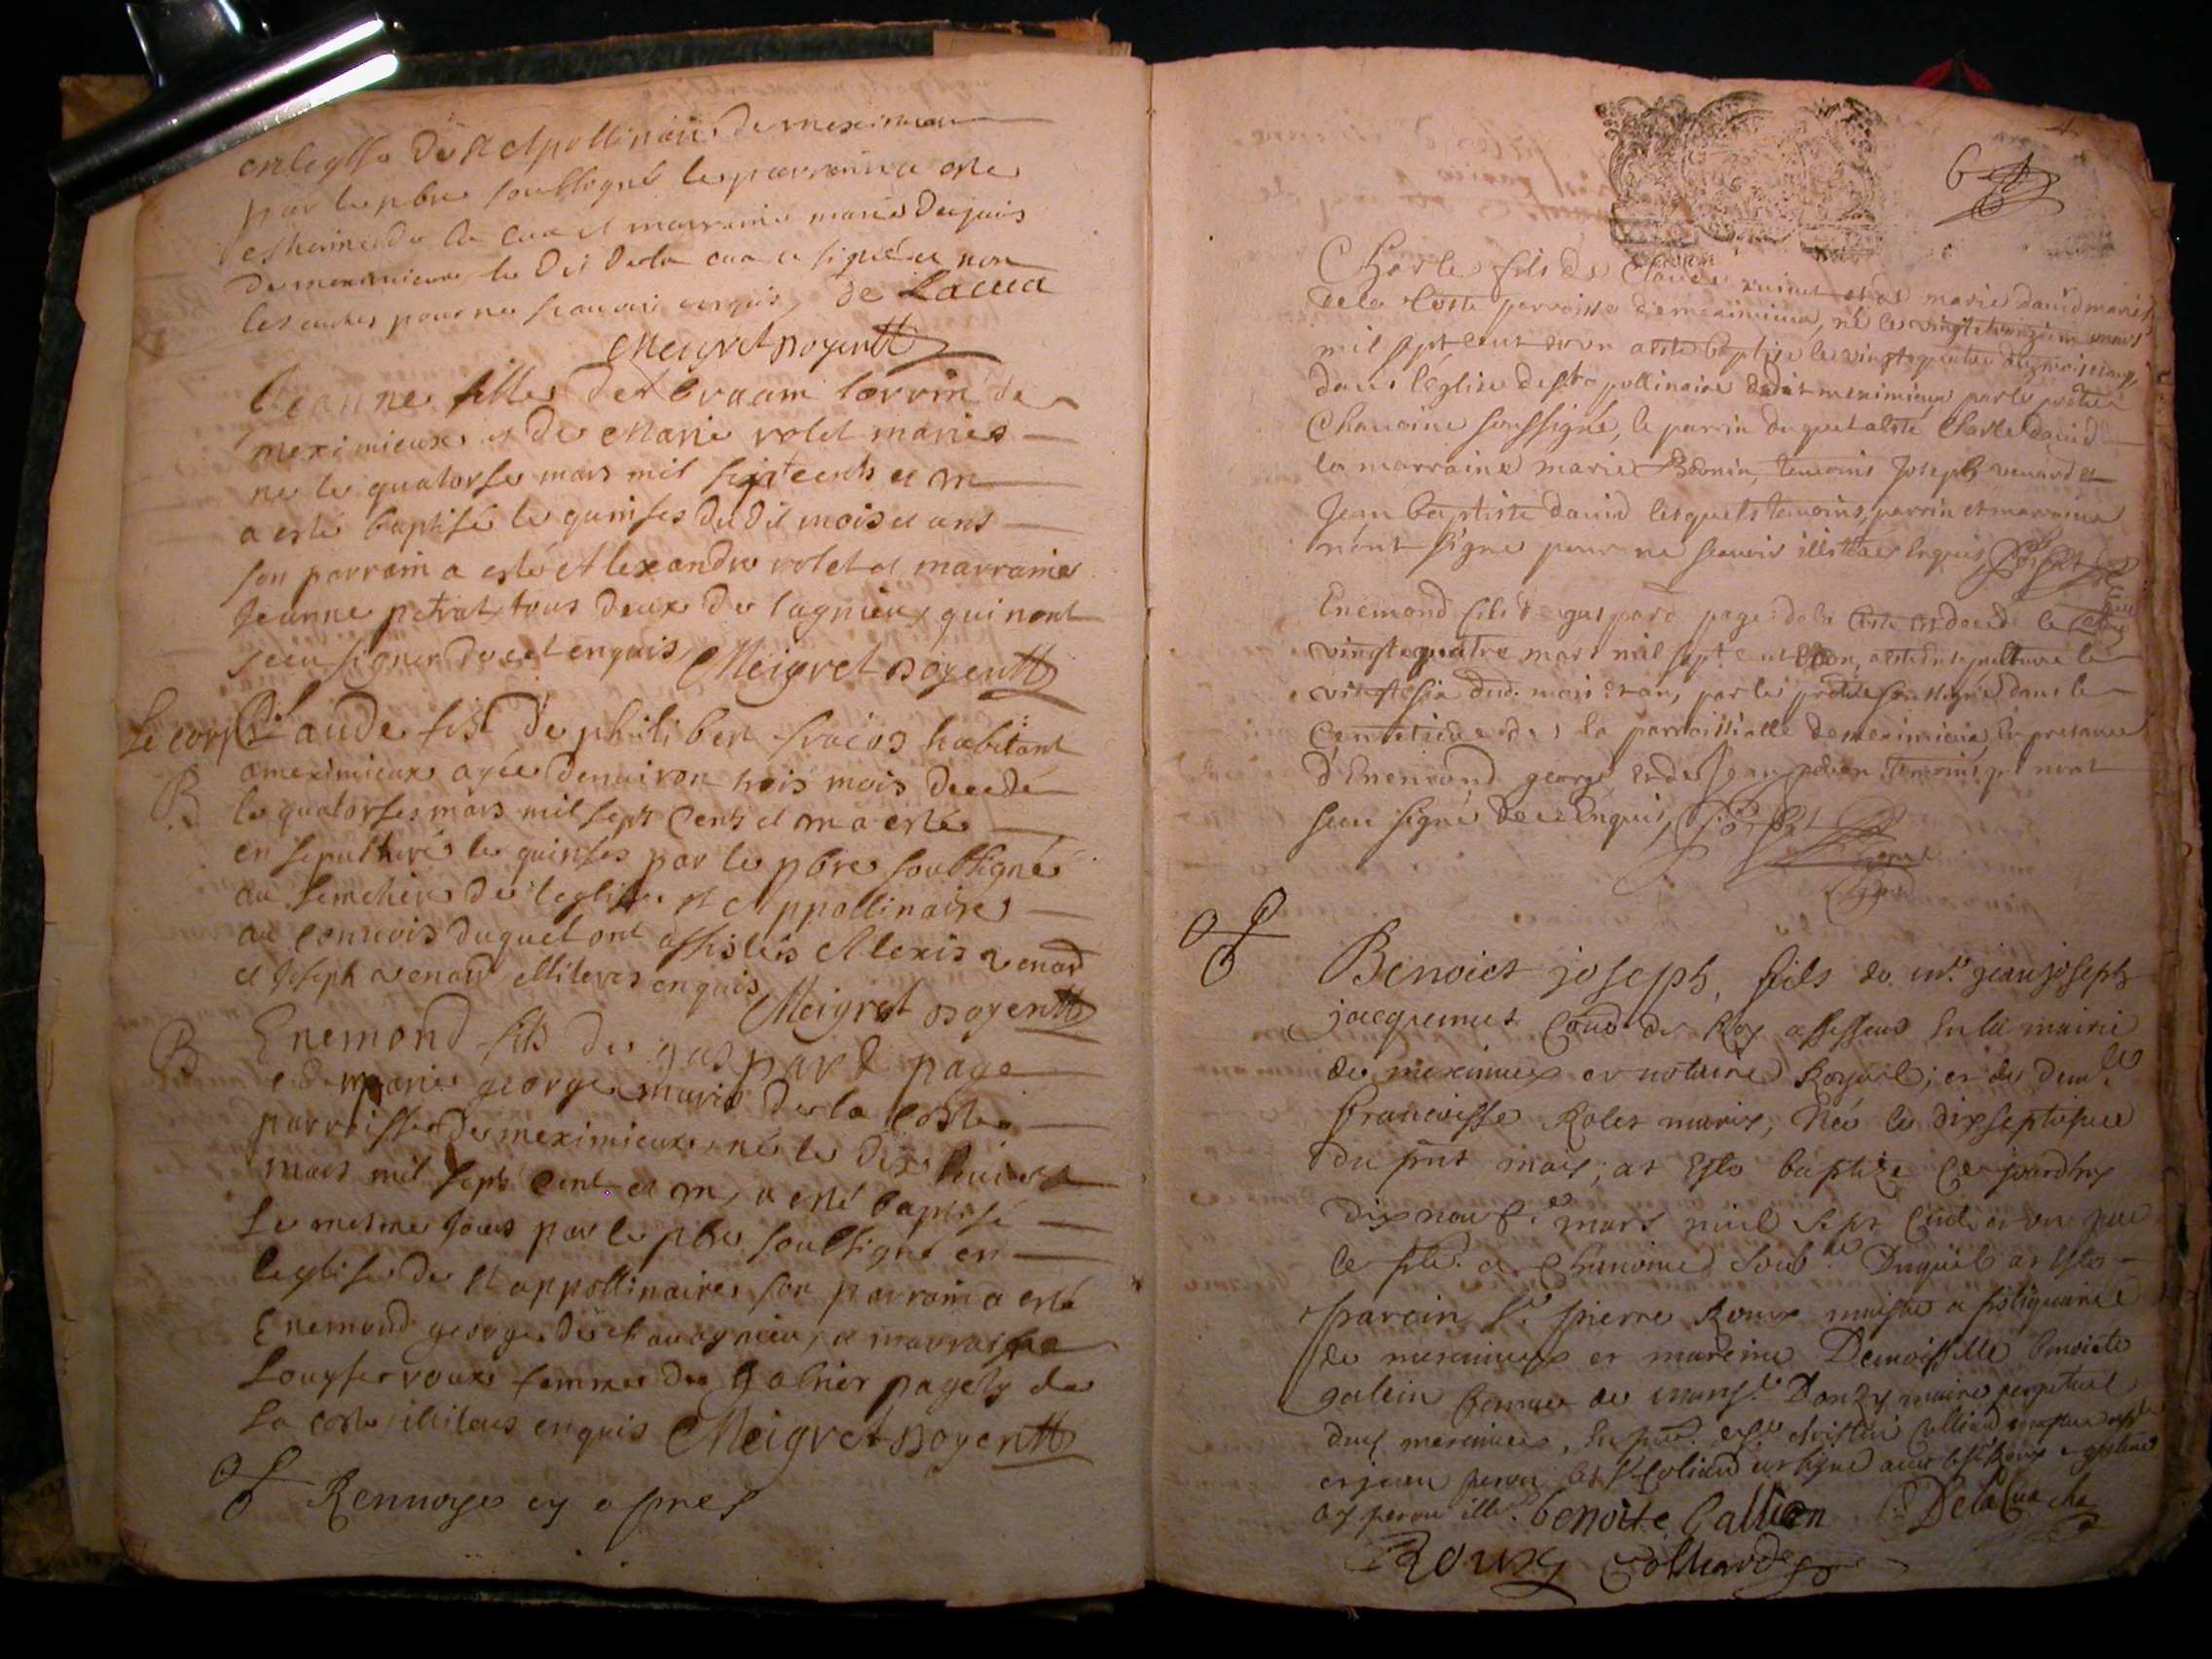 en leglise de st Apollinaire de meximieux
par le pbre soubsigné le parrain a esté
estienne de la cua et marraine marie dupuis
de meximieux le dit de la cua a signé et non
les autres pour ne scavoir enquis de Lacua
Meigret doyen
Jeanne fille de Abraam lorrin de
meximieux et de Marie volet mariés
né le quatorse mars mil sept cents et un
a esté baptisé le quinses du dit mois et ans
son parrain a esté Alexandre volet et marraine
Jeanne petrat tous deux de lagnieu qui nont
sceu signer de cet enquis Meigret doyen
Le corps Claude fils de philibert habitant
a meximieux agée denuiron trois mois decedé
le quatorses mars mil sept cents et un a esté
en sepulturé le quinses par le pbre soubsigné
au semetiere de leglise st Appollinaire
au conuois duquel ont assistés Alexis venard
et Joseph venard illiteres enquis Meigret doyen
B
B Enemond fils de gaspard page
et de marie george mariés de la coste
parroisse de meximieux né le dix huict
mars mil sept cent et un, a esté baptisé
le mesme jour par le pbre soubsigné en
leglise de st appollinaire son parrain a esté
Enemond george de chauagnieu, et marraine
Louyse roux femme de pagely de
la coste illiteres enquis Meigret doyen
Renuoye cy apres
6
Charle fils de Claude et de marie david mariés
de la Coste parroisse de meximieux, né le vingt troisieme mars
mil sept cent et un a esté baptisé le vingt quatre du mois et an,
dans l'eglise de st apollinaire dudit meximieux par le prêtre
Chanoine soussigné, le parrin duquel a esté Charle david
la marraine marie Bonnin, temoins Joseph venard et
Jean baptiste david lesquels temoins, parrin et marraine
n'ont signé pour ne scavoir illiteres enquis
Enemond fils de gaspard page de la Coste est decedé le
vingt quatre mars mil sept cent et un, a esté en sepulture le
vingt six dud. mois et an, par le prêtre soussigné dans le
Cemetiere de la parroissialle de meximieux, en presence
d'Enemond george et de Jean temoins qui n'ont
sceu signé de ce Enquis,
Benoict joseph, fils de mr. jean joseph
jacquemet Cons. du Roy assesseur en la mairie
de meximieux et notaire Royal; et de dem.lle
francoisse Rolet mariés; Né le dixseptiesme
du pnt mois; at Esté baptizé ce jourdhuy
dix neuf.e mars mil sept Cent et un par
le pbr. et Chanoine soub.né Duquel at Esté
parein sr. pierre Roux maistre apotiquaire
de meximieux et mareine Demoisselle benoiste
galien femme de mons.r Donzy maire perpetuel
dud. meximieux,
benoite Gallien De la Cua cha
Roux Colliard